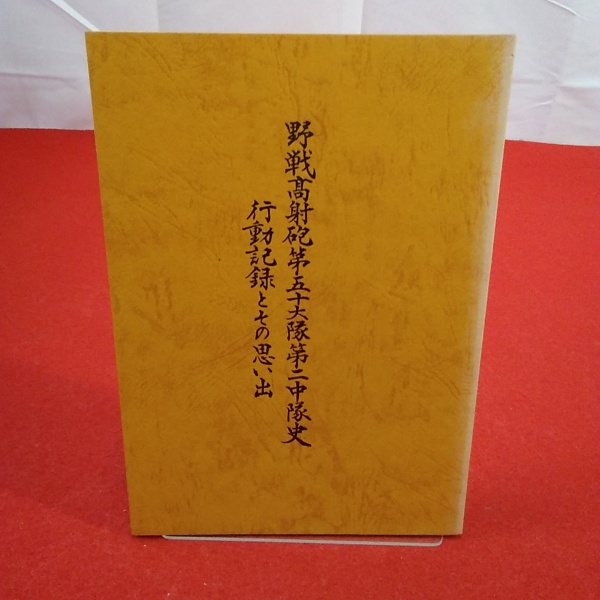 野戦高射砲第五十大隊第二中隊史
行動記録とその思い出